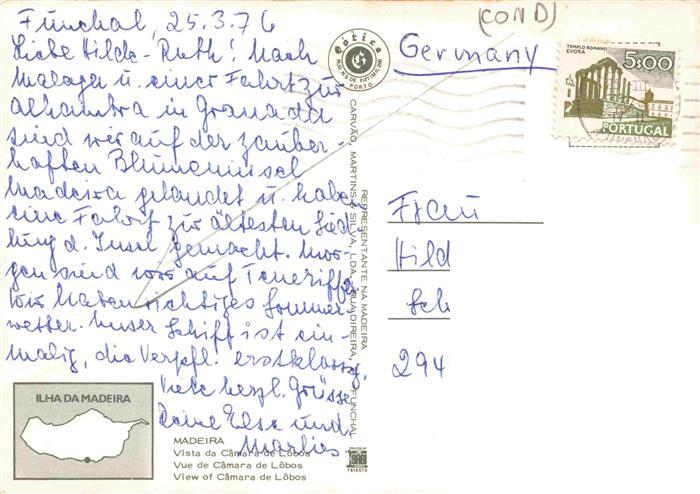 Funchal, 25.3.76
Liebe Hilde-Ruth! Nach
Malaga u. einer Fahrt zur
Alhambra in Granada
sind wir auf der zauber-
haften Blumeninsel
Madeira gelandet u. haben
eine Fahrt zur ältesten Sied-
lung d. Insel gemacht. Mor-
gen sind wir auf Teneriffa
Wir haben richtiges Sommer-
wetter. Unser Schiff ist ein-
malig, die Verpfl. erstklassig.
Viele herzl. Grüsse
Deine Else und
Marlies
(COND)
Germany
TEMPLO ROMANO
EVORA
5$00
PORTUGAL
Gótica
PORTO
REPRESENTANTE NA MADEIRA
CARVÃO, MARTINS & SILVA, LDA. RUA DIREIRA, FUNCHAL
Frau
Hild
Sch
294
ILHA DA MADEIRA
MADEIRA
Vista da Câmara de Lôbos
Vue de Câmara de Lôbos
View of Câmara de Lôbos
TRIESTE